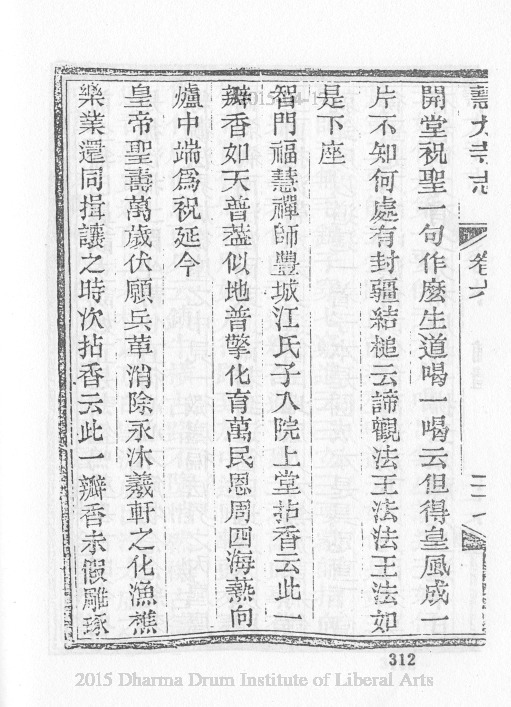 慧力寺志 卷六
開堂祝聖一句作麽生道喝一喝云但得皇風成一
片不知何處有封疆結槌云諦觀法王法法王法如
是下座
智門福慧禪師豐城江氏子入院上堂拈香云此一
瓣香如天普蓋似地普擎化育萬民恩周四海爇向
爐中端爲祝延今
皇帝聖壽萬歲伏願兵革消除永沐羲軒之化漁樵
樂業還同揖讓之時次拈香云此一瓣香未假雕琢
312
2015 Dharma Drum Institute of Liberal Arts